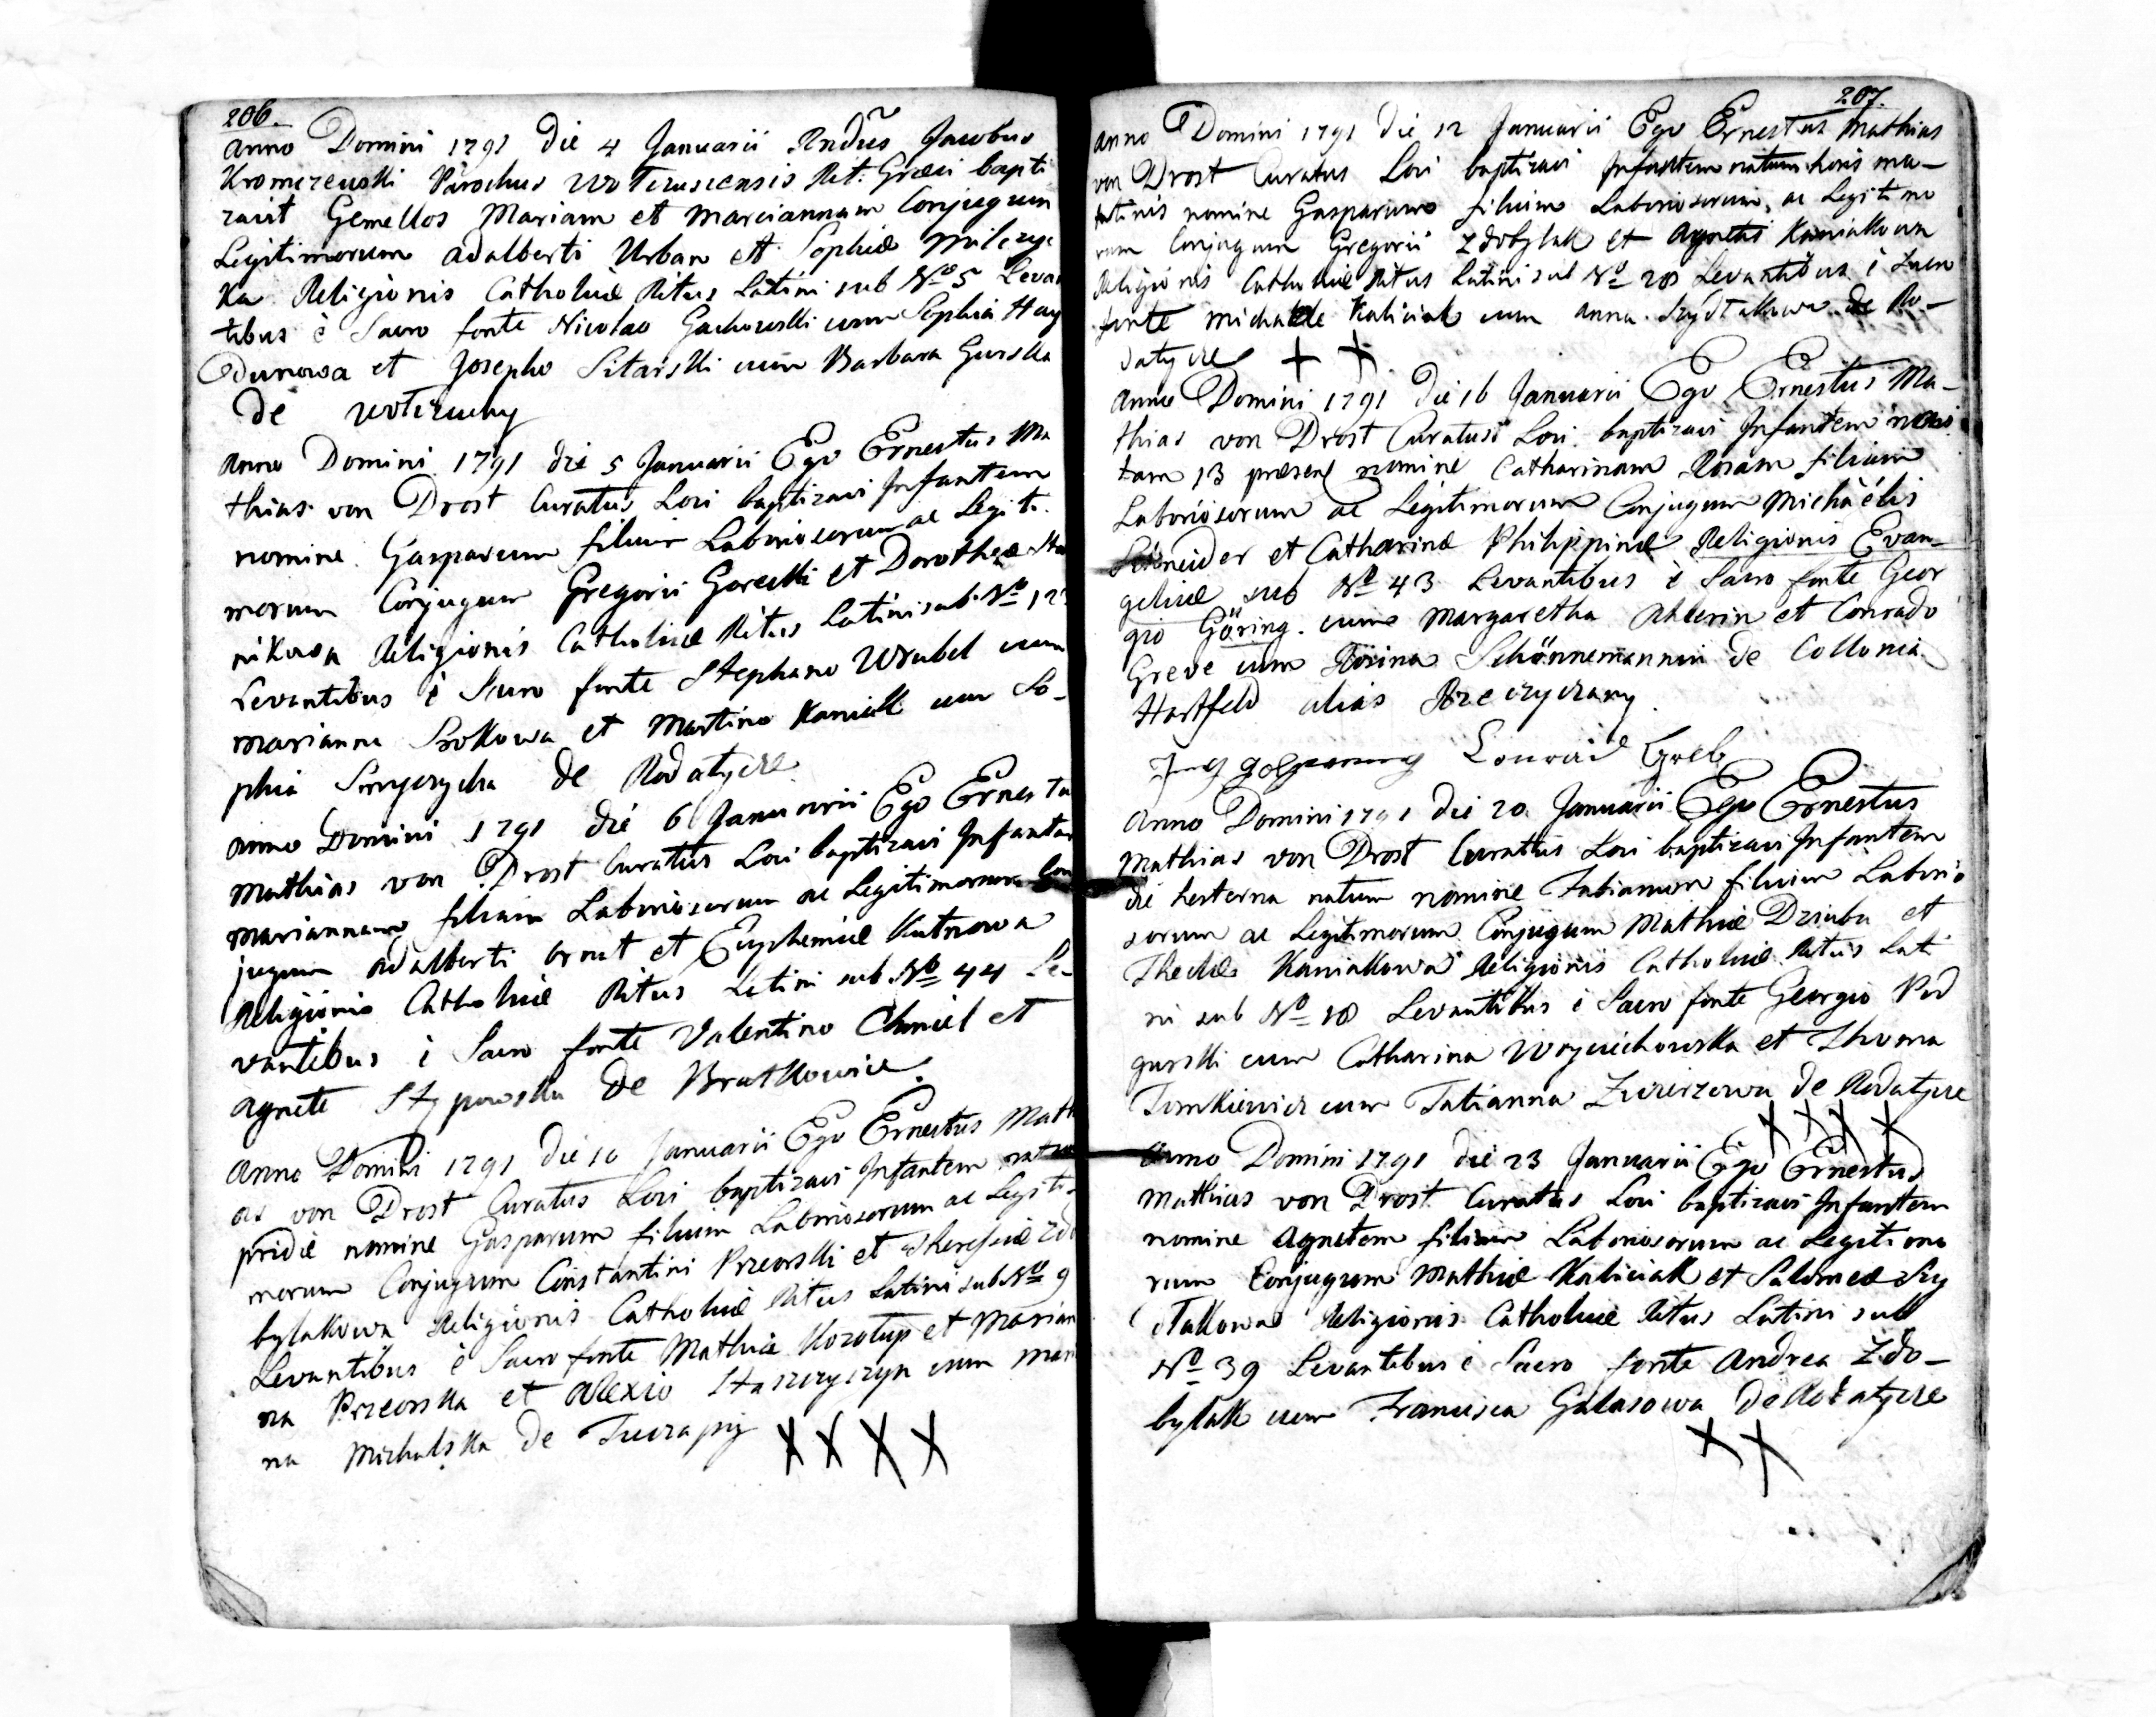 206.
Anno Domini 1791 die 4 Januarii Rndus Jacobus
Kromczewski Parochus Wotczusiensis Rit: Græci bapti
zavit Gemellos Mariam et Mariannam Conjugum
Legitimorum Adalberti Urban et Sophiæ Milczyc
Ka Religionis Catholicæ Ritus Latini sub No 5 Levan
tibus è Sacro fonte Nicolao Gachowski cum Sophia Hay
Dunowa et Josepho Sitarski cum Barbara Gurska
de Wotczuchy
Anno Domini 1791 die 5 Januarii Ego Ernestus Ma
thias von Drost Curatus Loci baptizavi Infantem
nomine Gasparum filium Laboriosorum ac Legiti
morum Conjugum Gregorii Gorecki et Dorotheæ
nikowa Religionis Catholicæ Ritus Latini sub No 12
Levantibus è Sacro fonte Stephano Wrubel cum
Marianna Srokowa et Martino Kaniak cum So-
phia de Rodatycze
Anno Domini 1791 die 6 Januarii Ego Ernestu
Mathias von Drost Curatus Loci baptizavi Infantem
Mariannam filiam Laboriosorum ac Legitimorum Con
jugum Adalberti et Euphemiæ Kutnowa
Religionis Catholicæ Ritus Latini sub No 44 Le-
vantibus è Sacro fonte Valentino Chmiel et
Agnete Stypowska de Bratkowice.
Anno Domini 1791 die 10 Januarii Ego Ernestus Math
as von Drost Curatus Loci baptizavi Infantem natum
pridie nomine Gasparum filium Laboriosorum ac Legiti-
morum Conjugum Constantini Przeorski et Theresiæ Zdo
bylakowa Religionis Catholicæ Ritus Latini sub No 9
Levantibus è Sacro fonte Mathia Korolup et Marian
na Przeorska et Alexio Staszczyszyn cum Mari
na Michalska de Tuczapy X X X X
207.
Anno Domini 1791 die 12 Januarii Ego Ernestus Mathias
von Drost Curatus Loci baptizavi Infantem natum horis ma-
tutinis nomine Gasparum filium Laboriosorum, ac Legitimo
rum Conjugum Gregorii Zdobylak et Agnetis Kaniakowa
Religionis Catholicæ Ritus Latini sub No 28 Levantibus è Sacro
fonte Michaele Kaliciak cum Anna Szydtakowa de Ro-
datycze + +
Anno Domini 1791 die 16 Januarii Ego Ernestus Ma-
thias von Drost Curatus Loci baptizavi Infantem
tam 13 præsens nomine Catharinam Rosam filiam
Laboriosorum ac Legitimorum Conjugum Michaëlis
Schneider et Catharinæ Philippinæ Religionis Evan-
gelicæ sub No 43 Levantibus è Sacro fonte Geor
gio Göring cum Margaretha Ahlerin et Conrado
Greve cum Schönnemannin de Collonia
Hartfeld alias Rzeczyczany.
Conrad Greb
Anno Domini 1791 die 20 Januarii Ego Ernestus
Mathias von Drost Curatus Loci baptizavi Infantem
die hesterna natum nomine Fabianum filium Laborio
sorum ac Legitimorum Conjugum Mathiæ Dziuba et
Theclæ Kaniakowa Religionis Catholicæ Ritus Lati
ni sub No 18 Levantibus è Sacro fonte Georgio Pod
gurski cum Catharina Woyciechowska et Thoma
Tomkiewicz cum Tatianna Zwierzowa de Rodatycze
X X X X
Anno Domini 1791 die 23 Januarii Ego Ernestus
Mathias von Drost Curatus Loci baptizavi Infantem
nomine Agnetem filiam Laboriosorum ac Legitimo
rum Conjugum Mathiæ Kaliciak et Salomeæ Szy
dtakowa Religionis Catholicæ Ritus Latini sub
No 39 Levantibus è Sacro fonte Andrea Zdo-
bylak cum Francisca Galasowa de Rodatycze
X X